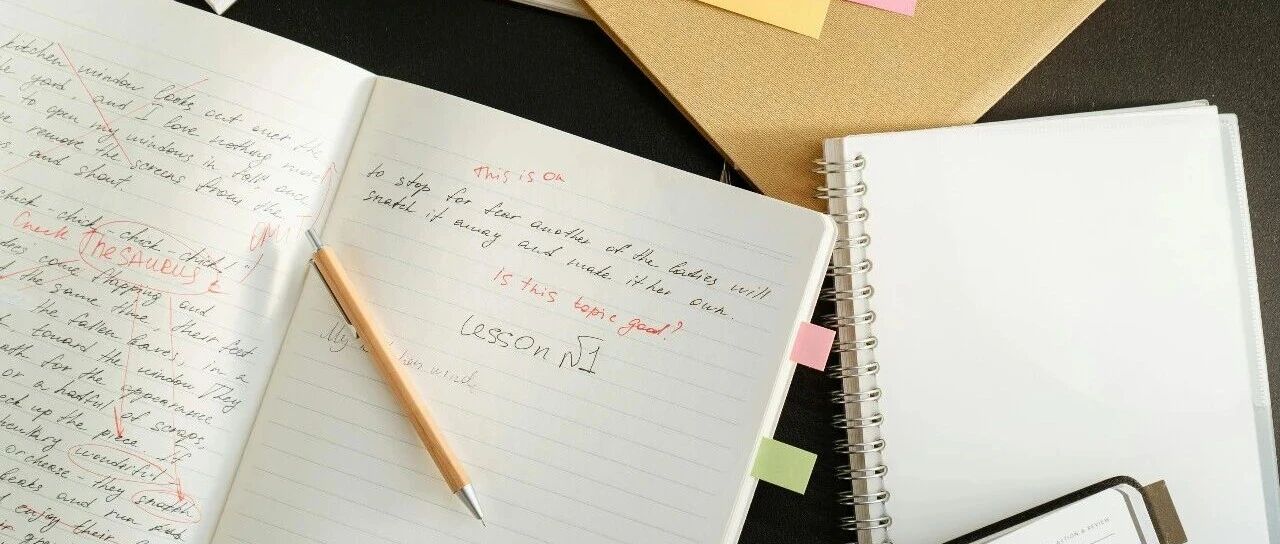 kitchen window looks out over the
yard, and I love nothing more
to open my windows in fall, and
remove the screens from the
and shout
chick-chick-chick-chick!"
Check Thesaurus
come flapping and
the same time, their feet
the fallen leaves, in a
toward the window. They
for the appearance
or a hatful of scraps,
up the piece
wonderful
or cheese - they snatch
and run
enjoy their
This is on
to stop for fear another of the ladies will
snatch it away and make it her own.
Is this topic good?
Lesson №1
My
ACTION & REVIEW